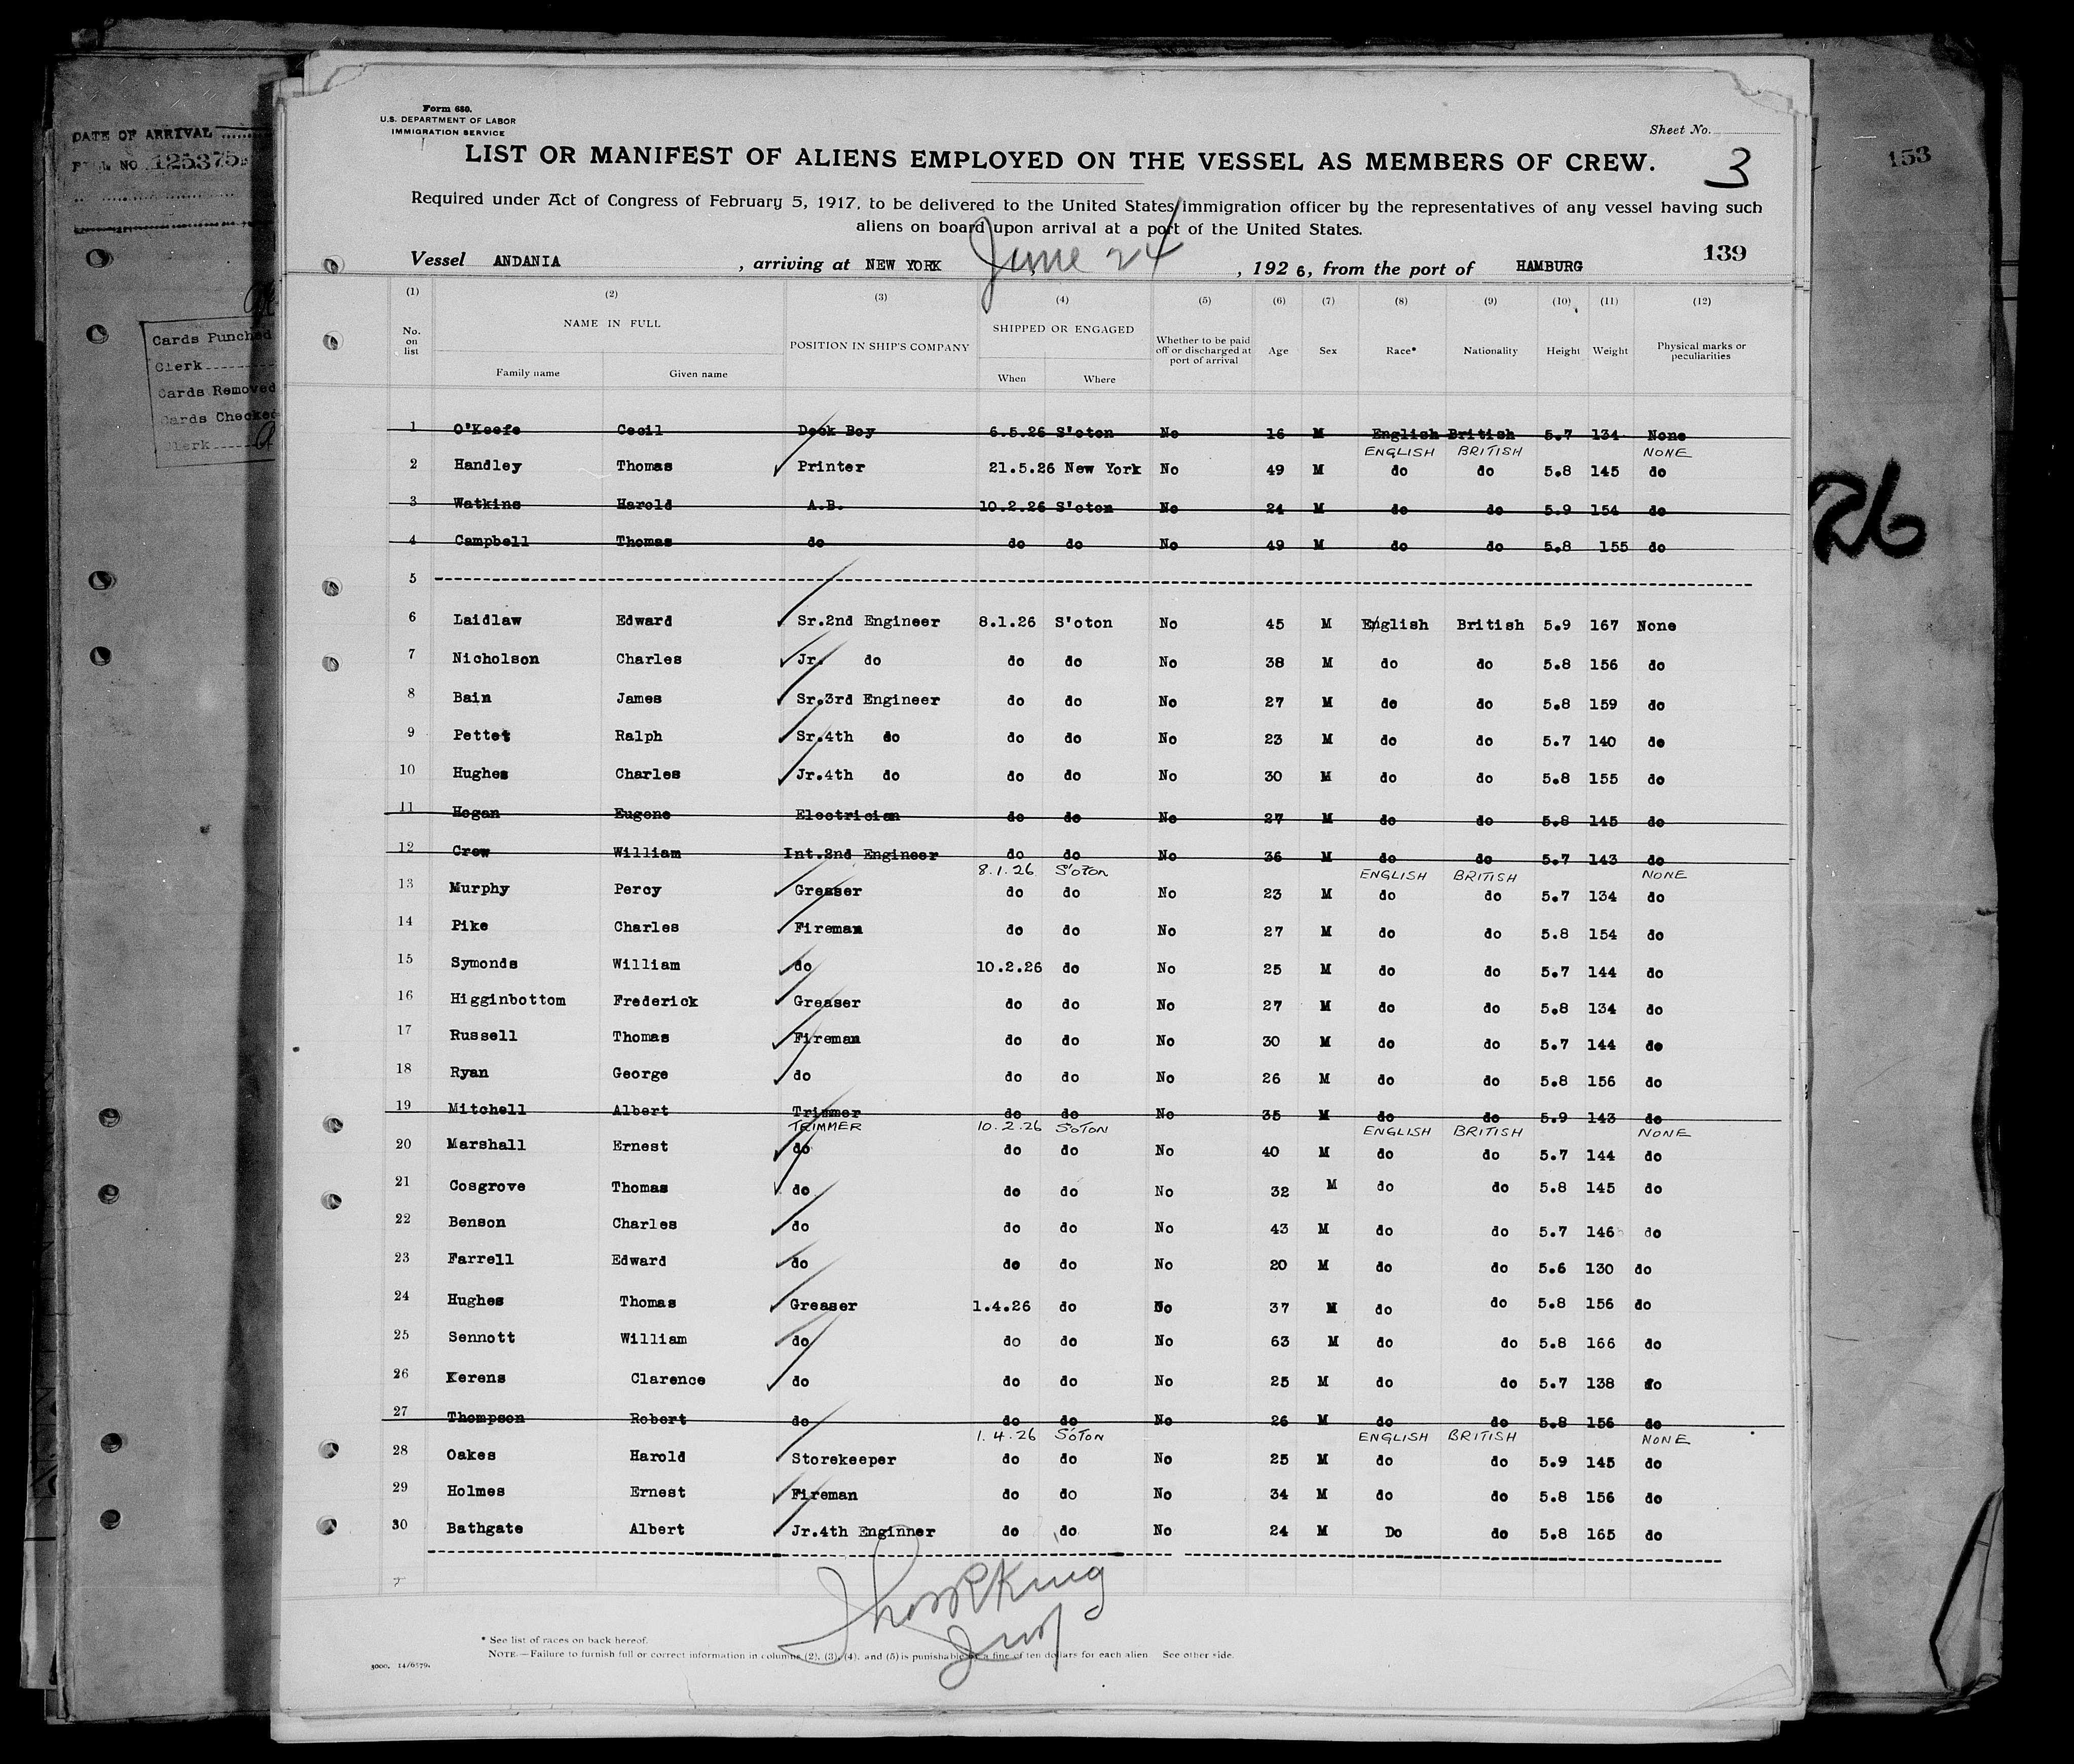 DATE OF ARRIVAL
NO. 125375
Cards Punched
Clerk
Cards Removed
Cards Checked
Clerk
153
26
Form 680.
U.S. DEPARTMENT OF LABOR
IMMIGRATION SERVICE
Sheet No.
3
LIST OR MANIFEST OF ALIENS EMPLOYED ON THE VESSEL AS MEMBERS OF CREW.
Required under Act of Congress of February 5, 1917, to be delivered to the United States immigration officer by the representatives of any vessel having such
aliens on board upon arrival at a port of the United States.
139
Vessel ANDANIA , arriving at NEW YORK June 24 , 192 6, from the port of HAMBURG
(1) (2) (3) (4) (5) (6) (7) (8) (9) (10) (11) (12)
No. on list NAME IN FULL Family name Given name POSITION IN SHIP'S COMPANY SHIPPED OR ENGAGED When Where Whether to be paid off or discharged at port of arrival Age Sex Race* Nationality Height Weight Physical marks or peculiarities
1 O'Keefe Cecil Deck Boy 6.5.26 S'oton No 16 M English British 5.7 134 None
ENGLISH BRITISH NONE
2 Handley Thomas Printer 21.5.26 New York No 49 M do do 5.8 145 do
3 Watkins Harold A.B. 10.2.26 S'oton No 24 M do do 5.9 154 do
4 Campbell Thomas do do do No 49 M do do 5.8 155 do
5
6 Laidlaw Edward Sr.2nd Engineer 8.1.26 S'oton No 45 M English British 5.9 167 None
7 Nicholson Charles Jr. do do do No 38 M do do 5.8 156 do
8 Bain James Sr.3rd Engineer do do No 27 M do do 5.8 159 do
9 Pettet Ralph Sr.4th do do do No 23 M do do 5.7 140 do
10 Hughes Charles Jr.4th do do do No 30 M do do 5.8 155 do
11 Hogan Eugene Electrician do do No 27 M do do 5.8 145 do
12 Crew William Int.2nd Engineer do do No 36 M do do 5.7 143 do
8.1.26 S'oton ENGLISH BRITISH NONE
13 Murphy Percy Greaser do do No 23 M do do 5.7 134 do
14 Pike Charles Fireman do do No 27 M do do 5.8 154 do
15 Symonds William do 10.2.26 do No 25 M do do 5.7 144 do
16 Higginbottom Frederick Greaser do do No 27 M do do 5.8 134 do
17 Russell Thomas Fireman do do No 30 M do do 5.7 144 do
18 Ryan George do do do No 26 M do do 5.8 156 do
19 Mitchell Albert Trimmer do do No 35 M do do 5.9 143 do
TRIMMER 10.2.26 S'OTON ENGLISH BRITISH NONE
20 Marshall Ernest do do do No 40 M do do 5.7 144 do
21 Cosgrove Thomas do do do No 32 M do do 5.8 145 do
22 Benson Charles do do do No 43 M do do 5.7 146 do
23 Farrell Edward do do do No 20 M do do 5.6 130 do
24 Hughes Thomas Greaser 1.4.26 do No 37 M do do 5.8 156 do
25 Sennott William do do do No 63 M do do 5.8 166 do
26 Kerens Clarence do do do No 25 M do do 5.7 138 do
27 Thompson Robert do do do No 26 M do do 5.8 156 do
1.4.26 S'OTON ENGLISH BRITISH NONE
28 Oakes Harold Storekeeper do do No 25 M do do 5.9 145 do
29 Holmes Ernest Fireman do do No 34 M do do 5.8 156 do
30 Bathgate Albert Jr.4th Enginner do do No 24 M Do do 5.8 165 do
* See list of races on back hereof.
NOTE.—Failure to furnish full or correct information in columns (2), (3), (4), and (5) is punishable by a fine of ten dollars for each alien See other side.
3000. 14/6579.